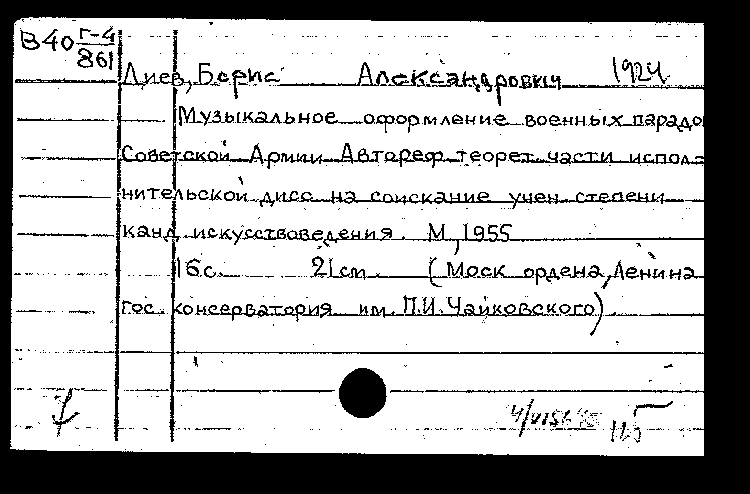 В40 Г-4
861
Диев, Борис Александрович 1924
Музыкальное оформление военных парадо
Советской Армии Автореф теорет части испол-
нительской дисс на соискание учен степени
канд искусствоведения. М, 1955
16 с. 21 см. (Моск ордена Ленина
гос. консерватория им. П.И. Чайковского).
115